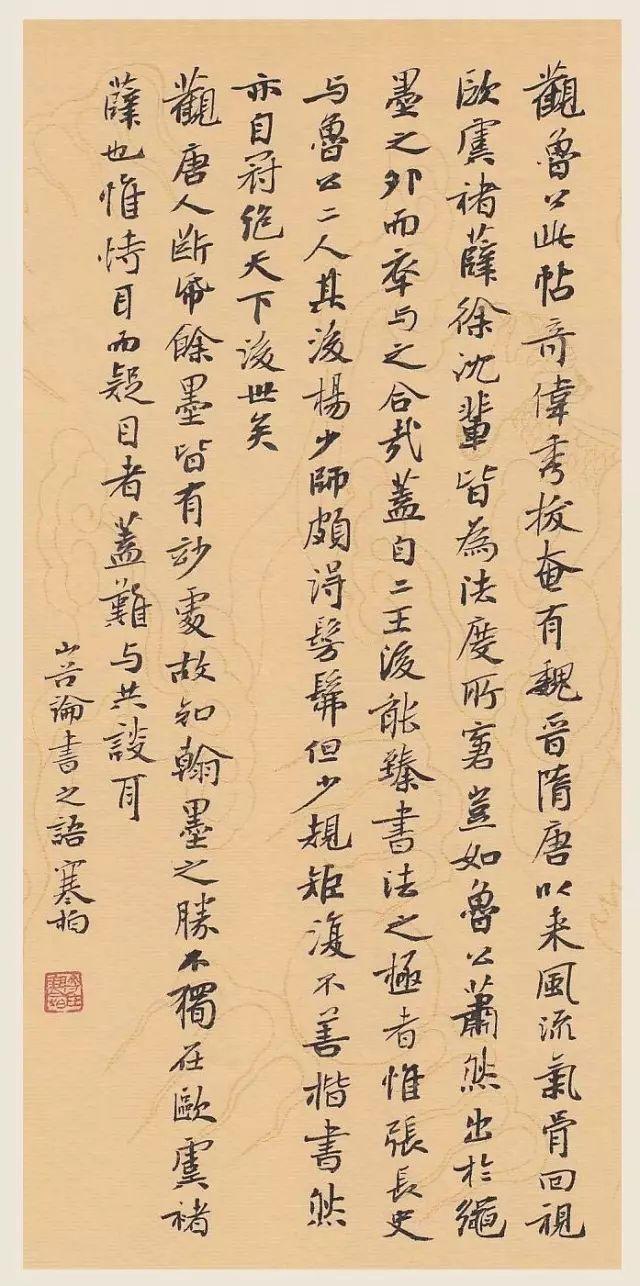 觀魯公此帖奇偉秀拔奄有魏晋隋唐以来風流氣骨回視
歐虞褚薛徐沈輩皆為法度所窘豈如魯公蕭然出於繩
墨之外而卒与之合哉蓋自二王後能臻書法之極者惟張長史
与魯公二人其後楊少師頗得髣髴但少規矩復不善楷書然
亦自冠绝天下後世矣
觀唐人断纸餘墨皆有妙處故知翰墨之勝不獨在歐虞褚
薛也惟恃耳而疑目者蓋難与共談耳
山谷論書之語寒柏